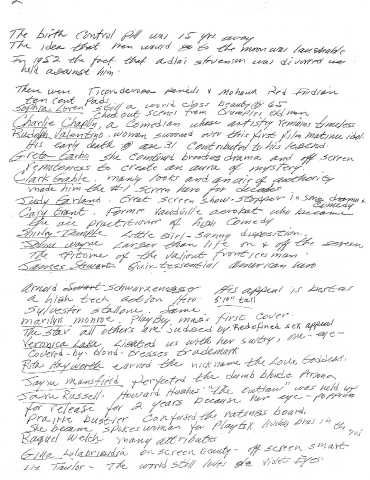 The birth control pill was 15 yrs away
The idea that man would go to the moon was laughable
In 1952 the fact that adlai stevenson was divorced was
held against him.
There were Ticonderoga pencils & Mohawk Red Indian
ten cent pads.
Sophia Loren still a world class beauty @ 65
Check out scenes from Grumpier old men
Charlie Chaplin, a Comedian whose artistry remains timeless
Rudolph Valentino. women swooned over this first film matinee idol.
His early death @ age 31 contributed to his legend.
Greta Garbo she combined brooding dramas and off screen
remoteness to create an aura of mystery
Clark Gable. manly looks and an air of authority
made him the #1 screen hero for decades
Judy Garland. Great screen show-stopper in song drama & comedy
Cary Grant. Former Vaudville acrobat who became
the ace practitioner of high Comedy
Shirley Temple. little girl sunny disposition.
John Wayne Larger than life on & off the screen
The epitome of the valiant frontiersman
James Stewart Quintessential american hero
Arnold Schwarzenegger His appeal is best as
a high tech action Hero. 5'10" tall
Sylvester stallone. Same
marilyn monroe. Playboy mag. first cover.
The star all others are judged by. Redefined sex appeal
Veronica Lake. Lighted us with her sultry, one-eye-
Covered-by-blond-tresses trademark
Rita Hayworth earned the nickname the Love Goddess.
Jayne mansfield perfected the dumb blonde Persona
Jane Russell. Howard Hughes "the Outlaw" was held up
for release for 2 years because her eye-popping
Prairie bustier confused the ratings board.
She became spokeswoman for Playtex living bras in the '70s
Raquel Welch many attributes
Gina Lolabrigida on screen beauty - off screen smart
Liz Taylor - The world still loves ole violet Eyes